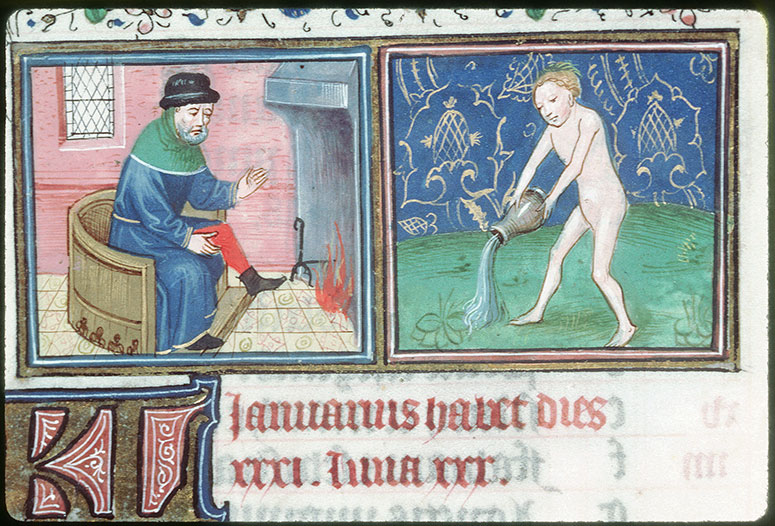 KL Ianuarius habet dies
xxxi. Luna xxx.